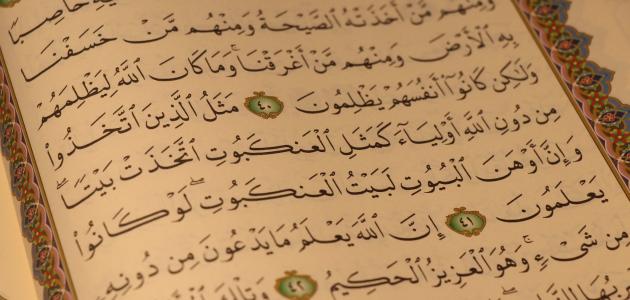 حَاصِبًا
وَمِنْهُم مَّنْ أَخَذَتْهُ ٱلصَّيْحَةُ وَمِنْهُم مَّنْ خَسَفْنَا
بِهِ ٱلْأَرْضَ وَمِنْهُم مَّنْ أَغْرَقْنَا ۚ وَمَا كَانَ ٱللَّهُ لِيَظْلِمَهُمْ
وَلَٰكِن كَانُوٓا۟ أَنفُسَهُمْ يَظْلِمُونَ ٤٠ مَثَلُ ٱلَّذِينَ ٱتَّخَذُوا۟
مِن دُونِ ٱللَّهِ أَوْلِيَآءَ كَمَثَلِ ٱلْعَنكَبُوتِ ٱتَّخَذَتْ بَيْتًا ۖ
وَإِنَّ أَوْهَنَ ٱلْبُيُوتِ لَبَيْتُ ٱلْعَنكَبُوتِ ۖ لَوْ كَانُوا۟
يَعْلَمُونَ ٤١ إِنَّ ٱللَّهَ يَعْلَمُ مَا يَدْعُونَ مِن دُونِهِۦ
مِن شَىْءٍ ۚ وَهُوَ ٱلْعَزِيزُ ٱلْحَكِيمُ ٤٢ وَتِلْكَ